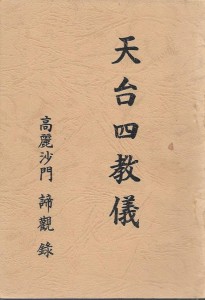 天台四教儀
高麗沙門 諦觀 錄